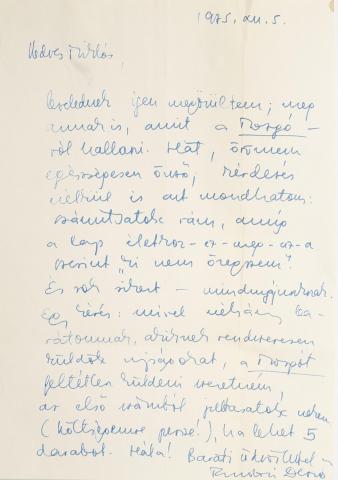 1975. XII. 5.
Kedves Miklós,
levelednek igen megörültem; meg
annak is, amit a Mozgó-
ról hallani. Hát, örömem
egészségesen önző; kérdezés
nélkül is azt mondhatom:
számítsatok rám, amíg
a lap élethoz-ez-meg-az-a
szerint "ki nem öregszem".
És sok sikert - mindnyájunknak.
Egy kérés: mivel néhány ba-
rátomnak, akiknek rendszeresen
küldök ujságokat, a Mozgót
feltétlen küldeni szeretném,
az első számból juttassatok nekem
(költségemre persze!), ha lehet 5
darabot. Hála! Baráti üdvözlettel
Dezső